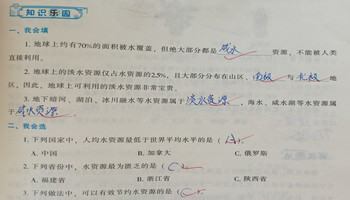 知识乐园
一、我会填
1. 地球上约有70%的面积被水覆盖，但绝大部分都是咸水资源，不能被人类
直接利用。
2. 地球上的淡水资源仅占水资源的2.5%，且大部分分布在山区、南极与北极地
区，因此，地球上可利用的淡水资源非常宝贵。
3. 地下暗河、湖泊、冰川融水等水资源属于淡水资源，海水、咸水湖等水资源属
于咸水资源。
二、我会选
1. 下列国家中，人均水资源量低于世界平均水平的是（A）
A. 中国 B. 加拿大 C. 俄罗斯
2. 下列省份中，水资源最为匮乏的是（C）
A. 福建省 B. 浙江省 C. 陕西省
3. 下列做法中，可以有效节约水资源的是（C）